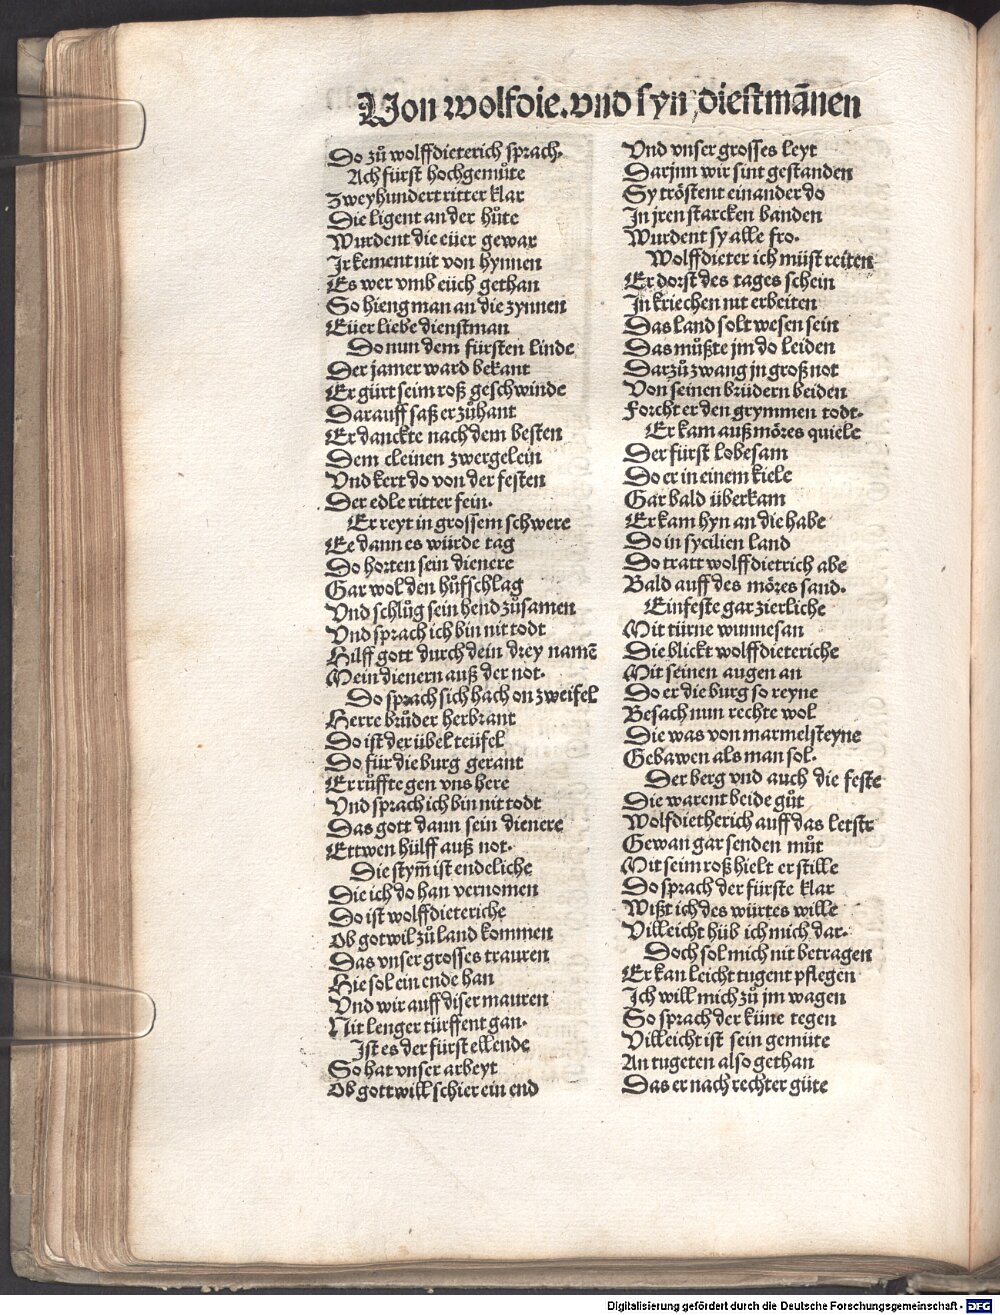 Von wolfdie. vnd syn diestmānen
Do zů wolffdieterich sprach.
Ach fürst hochgemůte
Zweyhundert ritter klar
Die ligent an der hůte
Wurdent die eüer gewar
Ir kement nit von hynnen
Es wer vmb eüch gethan
So hieng man an die zynnen
Eüer liebe dienstman
Do nun dem fürsten linde
Der jamer ward bekant
Er gürt seim roß geschwinde
Darauff saß er zůhant
Er danckte nach dem besten
Dem cleinen zwergelein
Vnd kert do von der festen
Der edle ritter fein.
Er reyt in grossem schwere
Ee dann es würde tag
Do horten sein dienere
Gar wol den hůfschlag
Vnd schlůg sein hend zůsamen
Vnd sprach ich bin nit todt
Hilff gott durch dein drey namē
Mein dienern auß der not.
Do sprach sich hach on zweifel
Herre brůder herbrant
Do ist der übel teüfel
Do für die burg gerant
Er růffte gen vns here
Vnd sprach ich bin nit todt
Das gott dann sein dienere
Ettwen hülff auß not.
Die stym̄ ist endeliche
Die ich do han vernomen
Do ist wolffdieteriche
Ob got wil zů land kommen
Das vnser grosses trauren
Hie sol ein ende han
Vnd wir auff diser mauren
Nit lenger türffent gan.
Ist es der fürst ellende
So hat vnser arbeyt
Ob gott will schier ein end
Vnd vnser grosses leyt
Darjnn wir sint gestanden
Sy tröstent einander do
In jren starcken banden
Wurdent sy alle fro.
Wolffdieter ich müst reiten
Er dorst des tages schein
In kriechen nit erbeiten
Das land solt wesen sein
Das můßte jm do leiden
Darzů zwang jn groß not
Von seinen brüdern beiden
Forcht er den grymmen todt.
Er kam auß möres quiele
Der fürst lobesam
Do er in einem kiele
Gar bald überkam
Er kam hyn an die habe
Do in sycilien land
Do tratt wolffdietrich abe
Bald auff des möres sand.
Ein feste gar zierliche
Mit türne wunnesan
Die blickt wolffdieteriche
Mit seinen augen an
Do er die burg so reyne
Besach nun rechte wol
Die was von marmelsteyne
Gebawen als man sol.
Der berg vnd auch die feste
Die warent beide gůt
Wolfdietherich auff das letste
Gewan gar senden můt
Mit seim roß hielt er stille
Do sprach der fürste klar
Wißt ich des würtes wille
Villeicht hüb ich mich dar.
Doch sol mich nit betragen
Er kan leicht tugent pflegen
Ich will mich zů jm wagen
So sprach der küne tegen
Villeicht ist sein gemüte
An tugeten also gethan
Das er nach rechter güte
Digitalisierung gefördert durch die Deutsche Forschungsgemeinschaft - DFG